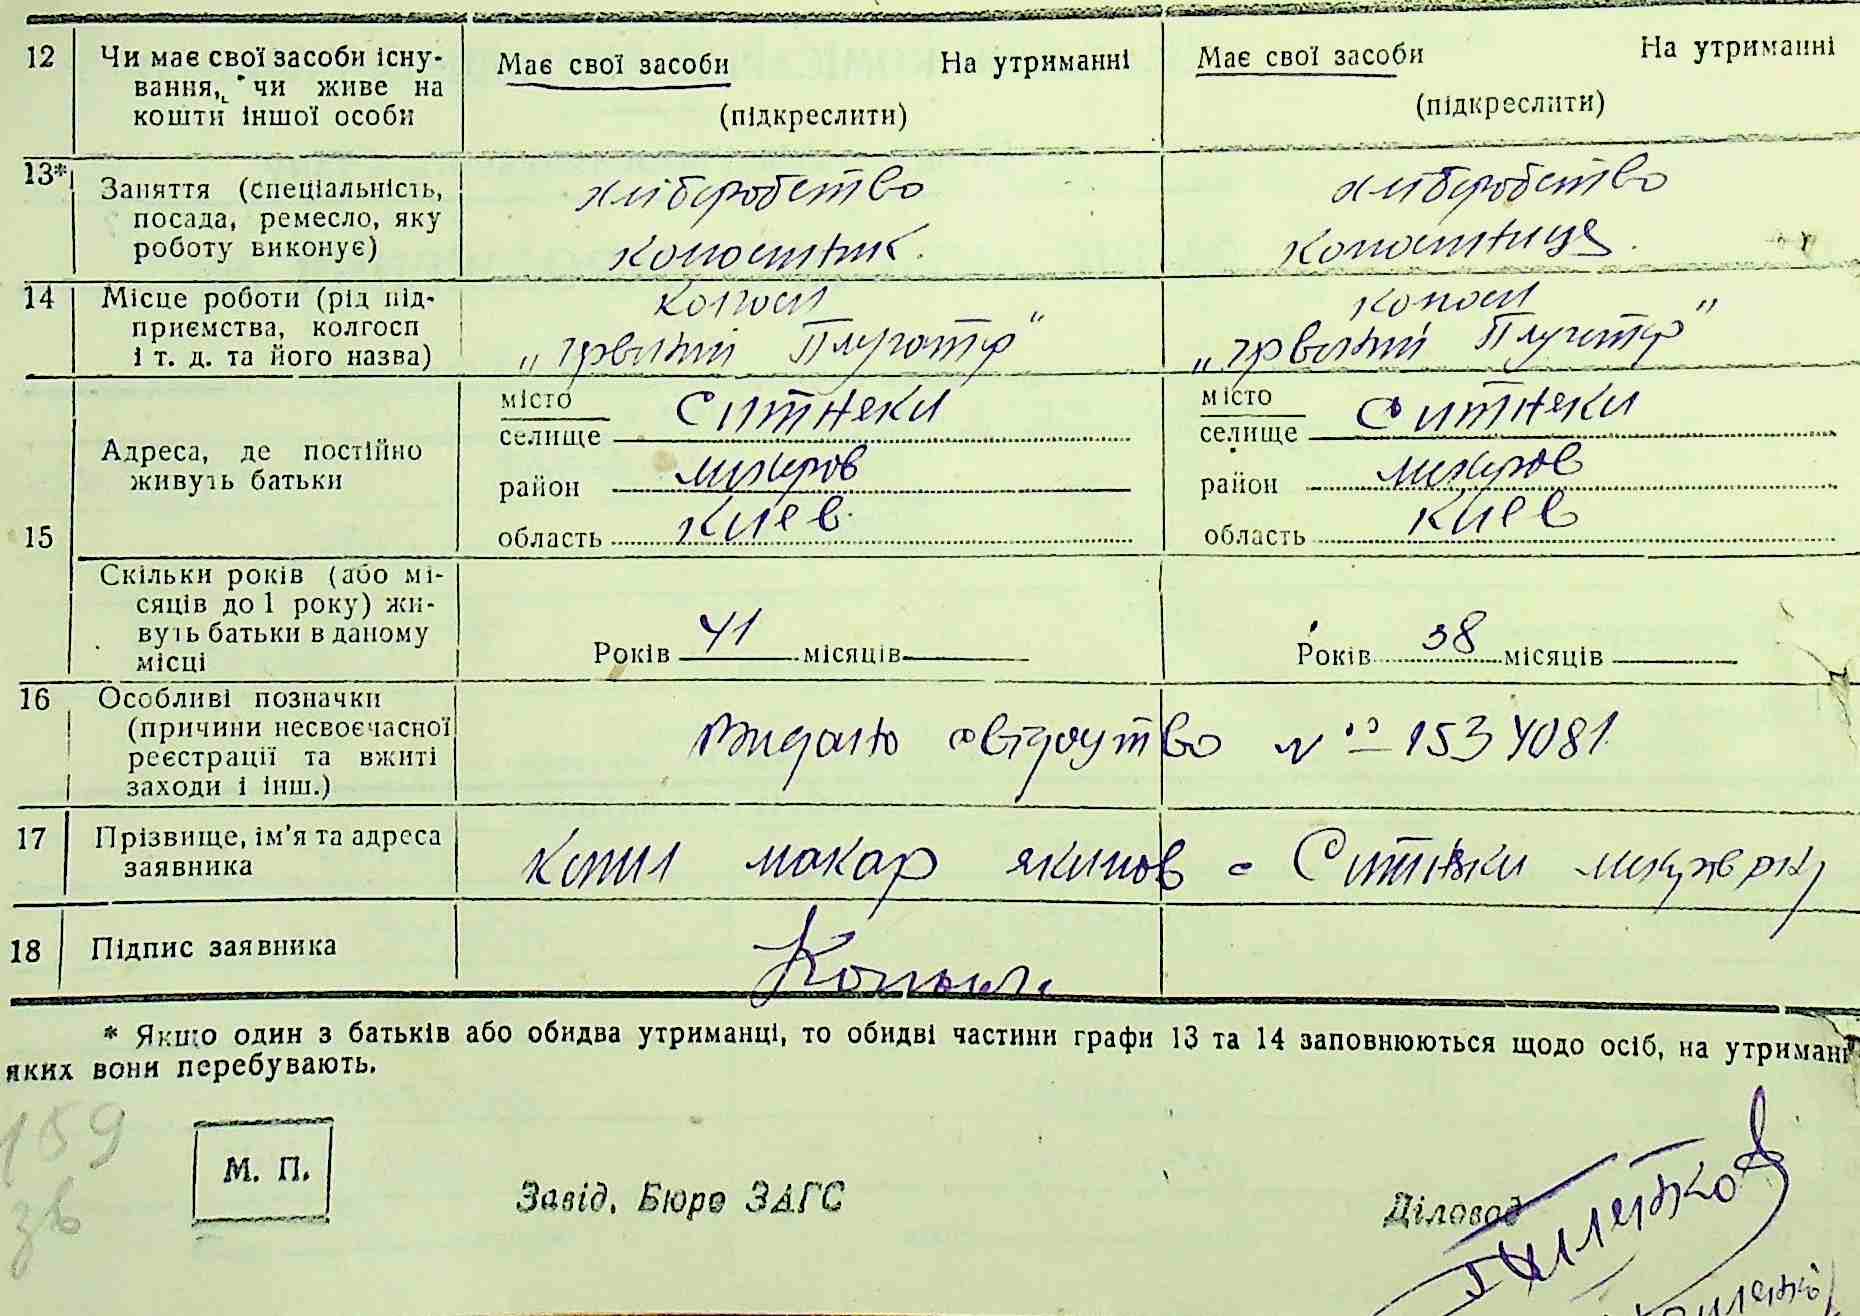 12 Чи має свої засоби існу- Має свої засоби На утриманні Має свої засоби На утриманні
вання, чи живе на
кошти іншої особи (підкреслити) (підкреслити)
13* Заняття (спеціальність, хліборобство хліборобство
посада, ремесло, яку
роботу виконує)
14 Місце роботи (рід під-
приємства, колгосп
і т. д. та його назва) Плугатир" Плугатир"
місто Ситняки місто Ситняки
селище селище
Адреса, де постійно
живуть батьки район район
15 область Киев. область Киев
Скільки років (або мі-
сяців до 1 року) жи-
вуть батьки в даному Років 41 місяців Років 38 місяців
місці
16 Особливі позначки
(причини несвоєчасної Видано свідоцтво № 1534081
реєстрації та вжиті
заходи і інш.)
17 Прізвище, ім'я та адреса Копил макар якимов с Ситняки
заявника
18 Підпис заявника
* Якщо один з батьків або обидва утриманці, то обидві частини графи 13 та 14 заповнюються щодо осіб, на утриманні
яких вони перебувають.
159
зв
М. П.
Завід. Бюро ЗАГС Діловод